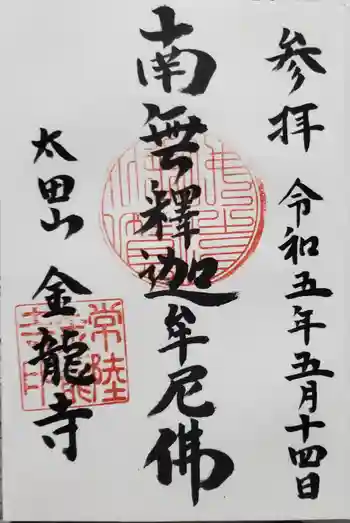 参拝 令和五年五月十四日
南無釋迦牟尼佛
太田山 金龍寺